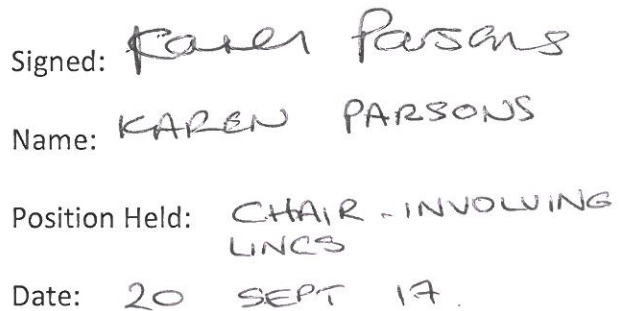 Signed: Karen Parsons
Name: KAREN PARSONS
Position Held: CHAIR - INVOLVING
LINCS
Date: 20 SEPT 17.